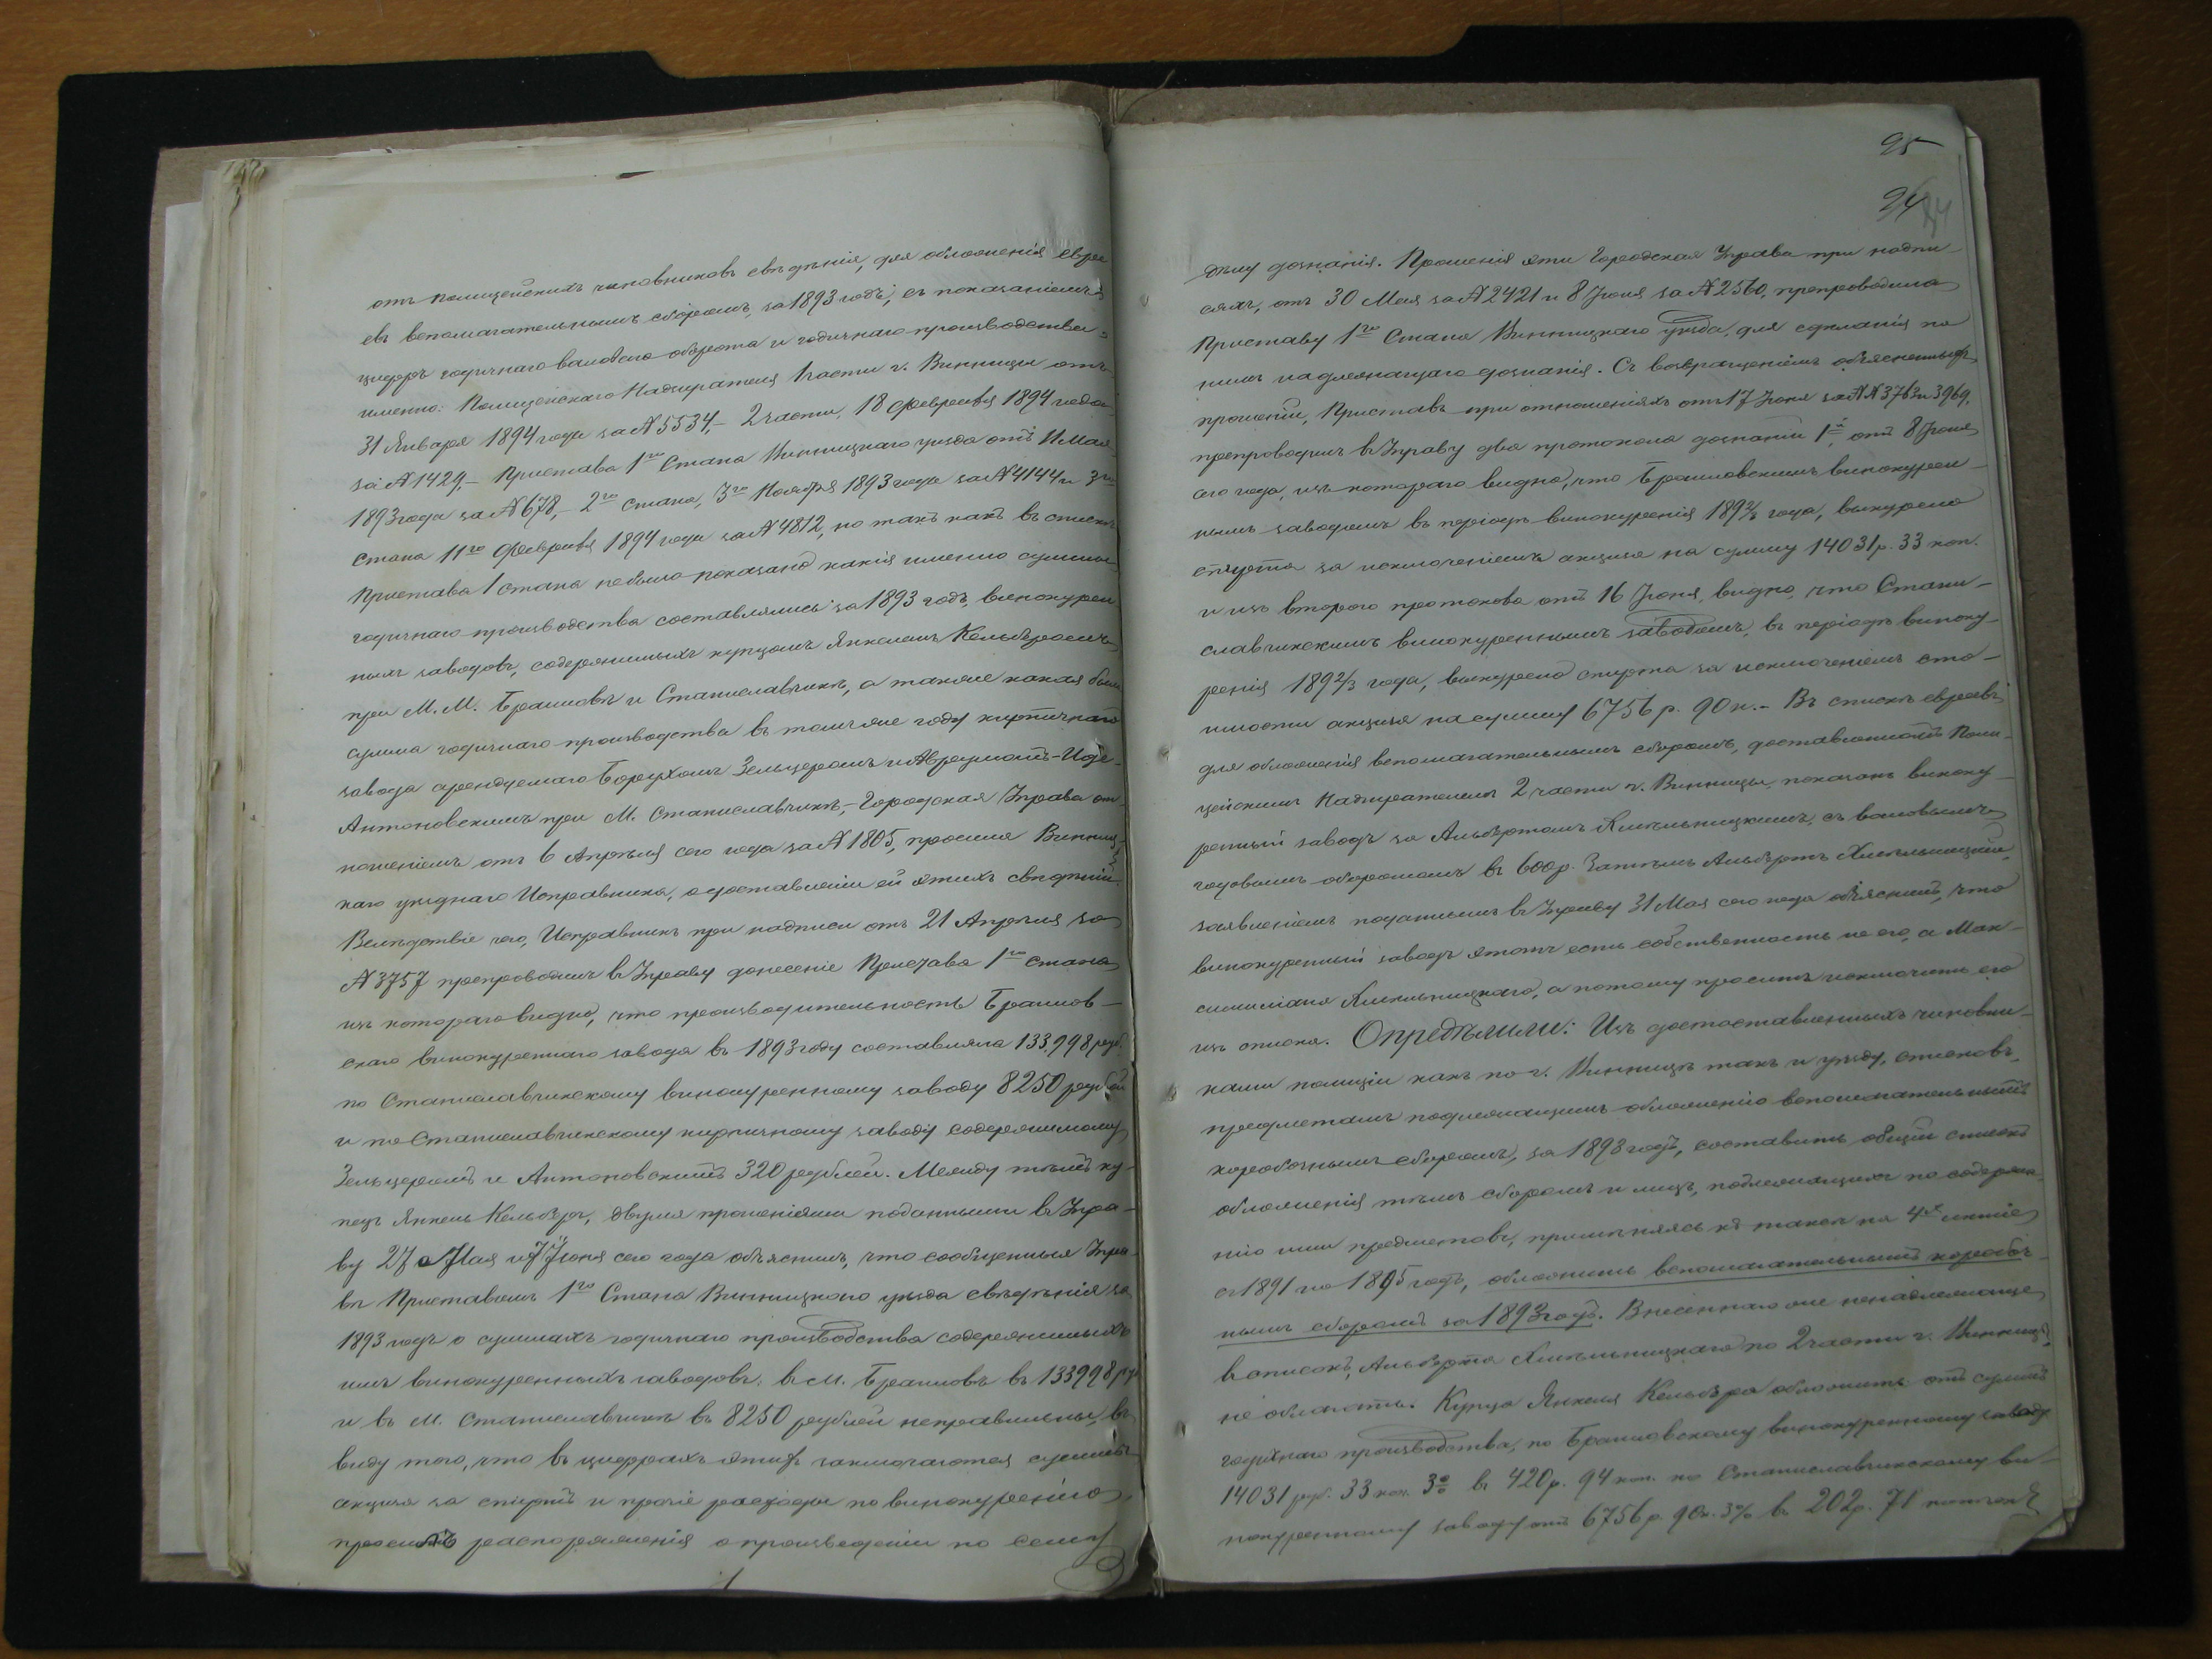 отъ полицейскихъ чиновниковъ свѣдѣнія, для обложенія евре
евъ вспомагательнымъ сборомъ, за 1893 годъ, съ показаніемъ
цифръ годичнаго валоваго оборота и годичнаго производства,
именно: Полицейскаго Надзирателя 1 части г. Винницы отъ
31 Января 1894 года за № 5534,– 2 части, 18 Февраля 1894 года
за № 1429,– Пристава 1го Стана Винницкаго уѣзда отъ 11 Мая
1893 года за № 678,– 2го стана, 3го Ноября 1893 года за № 4144 и 3го
Стана 11го Февраля 1894 года за № 4812, но такъ какъ въ спискѣ
Пристава 1 стана небыло показано какія именно суммы
годичнаго производства составлялись за 1893 годъ, винокурен
ныхъ заводовъ, содержимыхъ купцомъ Янкелемъ Кельберомъ
при М. М. Браиловѣ и Станиславчикѣ, а также какая была
сумма годичнаго производства въ томъ же году кирпичнаго
завода арендуемаго Борухомъ Зельцеромъ и Абрумомъ-
Антоновскимъ при М. Станиславчикѣ,– Городская Управа от-
ношеніемъ отъ 6 Апрѣля сего года за № 1805, просила Винниц-
каго уѣзднаго Исправника, о доставленіи ей этихъ свѣдѣній.
Вслѣдствіе чего, Исправникъ при надписи отъ 21 Апрѣля за
№ 3757 препроводилъ въ Управу донесеніе Пристава 1го стана
изъ котораго видно, что производительность Браилов–
скаго винокуреннаго завода въ 1893 году составляла 133.998 руб.
по Станиславчикскому винокуренному заводу 8250 рублей
и по Станиславчикскому кирпичному заводу содержимому
Зельцеромъ и Антоновскимъ 320 рублей. Между тѣмъ ку-
пецъ Янкель Кельберъ, двумя прошеніями поданными въ Упра–
ву 27 Мая и 7 Іюня сего года объяснилъ, что сообщенныя Упра–
вѣ Приставомъ 1го Стана Винницкаго уѣзда свѣдѣнія за
1893 годъ о суммахъ годичнаго производства содержимыхъ
имъ винокуренныхъ заводовъ: въ М. Браиловѣ въ 133998 ру
и въ М. Станиславчикѣ въ 8250 рублей неправильны, въ
виду того, что въ цифрахъ этихъ заключаются суммы
акциза за спиртъ и прочіе расходы по винокуренію,
проситъ распоряженія о произведеніи по сему
95
94
дѣлу дознанія. Прошенія эти Городская Управа при надпи–
сяхъ, отъ 30 Мая за № 2421 и 8 Іюня за № 2560, препроводила
Приставу 1го Стана Винницкаго уѣзда, для сдѣланія по
нимъ надлежащаго дознанія. Съ возвращеніемъ объясненныхъ
прошеній, Приставъ при отношеніяхъ отъ 17 Іюня за №№ 3763 и 3969,
препроводилъ въ Управу два протокола дознаній 1й, отъ 8 Іюня
сего года, изъ котораго видно, что Браиловскимъ винокурен–
нымъ заводомъ въ періодъ винокуренія 1892/3 года, выкурено
спирта за исключеніемъ акциза на сумму 14031 р. 33 коп.
и изъ втораго протокова отъ 16 Іюня, видно, что Стани–
славчикскимъ винокуреннымъ заводомъ, въ періодъ виноку–
ренія 1892/3 года, выкурено спирта за исключеніемъ сто–
имости акциза на сумму 6756 р. 90 к.– Въ спискѣ евреевъ
для обложенія вспомагательнымъ сборомъ, доставленномъ Поли–
цейскимъ Надзирателемъ 2 части г. Винницы, показанъ виноку–
ренный заводъ за Альбертомъ Хмѣльницкимъ, съ валовымъ
годовымъ оборотомъ въ 600 р. Затѣмъ Альбертъ Хмѣльницкій,
заявленіемъ поданнымъ въ Управу 31 Мая сего года объяснилъ, что
винокуренный заводъ этотъ есть собственность не его, а Мак–
симиліана Хмѣльницкаго, а потому проситъ исключить его
изъ списка. Опредѣлили: Изъ достоставленныхъ чиновни–
ками полиціи какъ по г. Винницѣ такъ и уѣзду, списковъ,
предметамъ подлежащимъ обложенію вспомагательнымъ
коробочнымъ сборомъ, за 1893 годъ, составить общій списокъ
обложенія тѣмъ сборомъ и лицъ, подлежащихъ по содержа–
нію ими предметовъ, примѣняясь къ таксѣ на 4х лѣтіе
съ 1891 по 1895 годъ, обложить вспомагательнымъ коробоч–
нымъ сборомъ за 1893 годъ. Внесеннаго же ненадлежаще
въ списокъ, Альберта Хмѣльницкаго по 2 части г. Винницы,
не облагать. Купца Янкеля Кельбера обложить отъ суммъ
годичнаго производства, по Браиловскому винокуренному заводу
14031 руб. 33 коп. 3% въ 420 р. 94 коп. по Станиславчикскому ви–
нокуренному заводу отъ 6756 р. 90 к. 3% въ 202 р. 71 копѣекъ